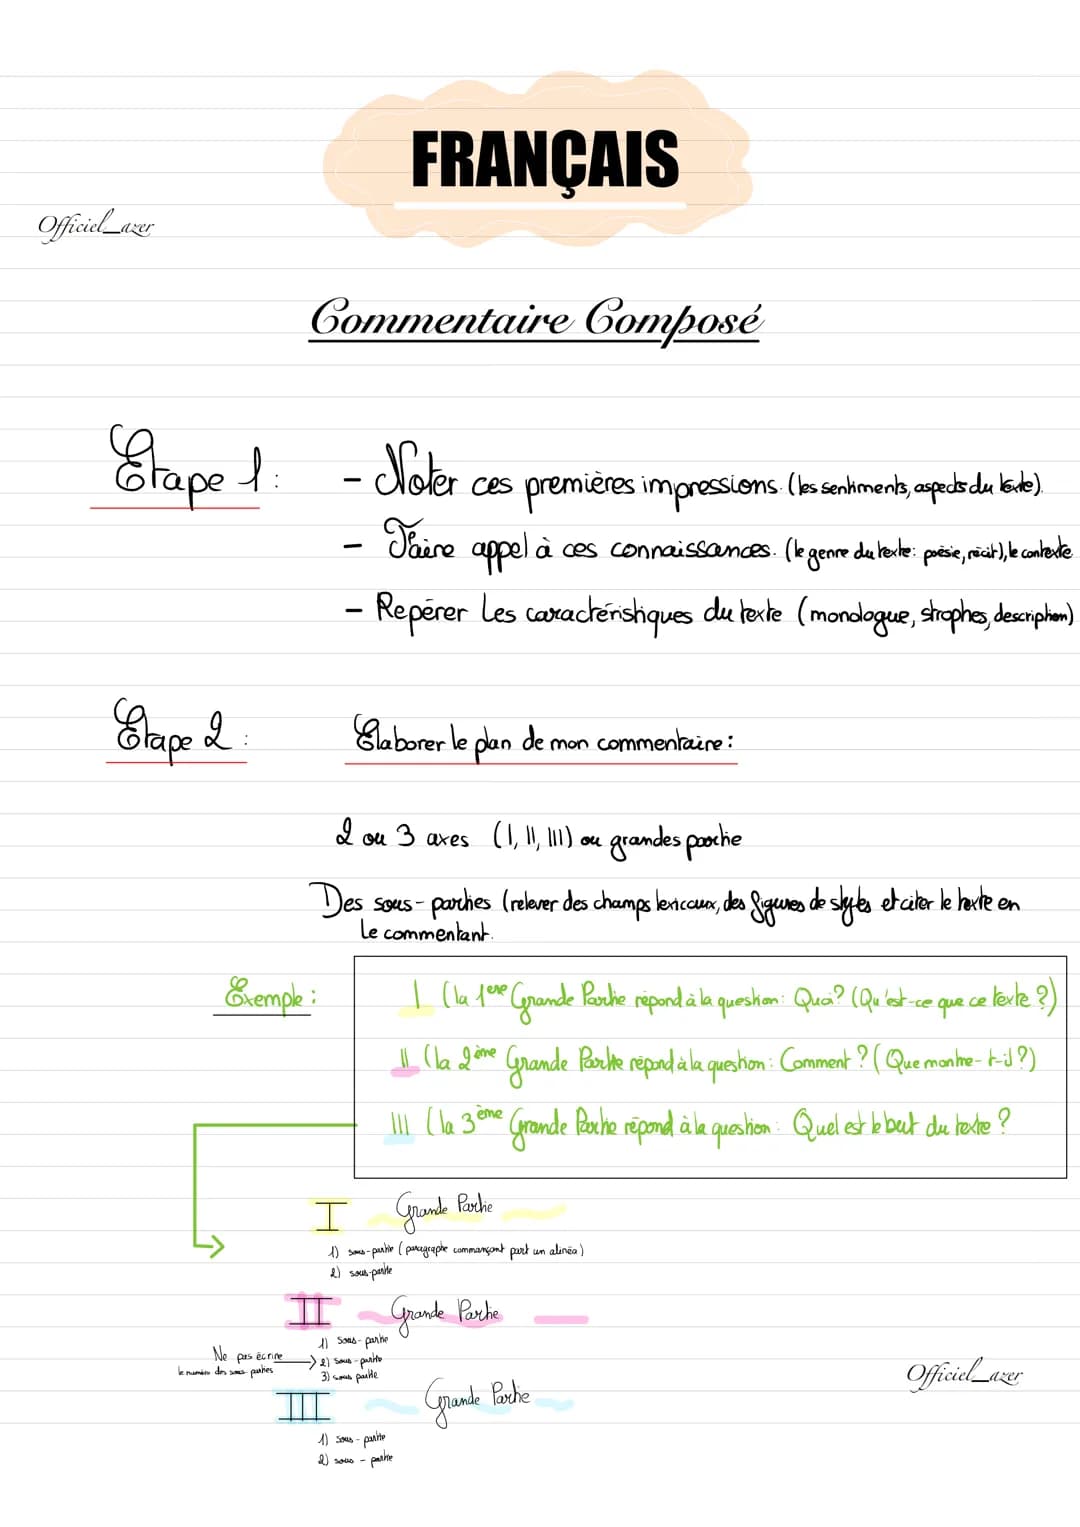 FRANÇAIS
Officiel_azer
Commentaire Composé
Étape 1: - Noter ces premières impressions. (les sentiments, aspects du texte).
- Faire appel à ces connaissances. (le genre du texte: poésie, récit), le contexte
- Repérer Les caractéristiques du texte (monologue, strophes, description)
Étape 2: Élaborer le plan de mon commentaire:
2 ou 3 axes (I, II, III) ou grandes partie
Des sous-parties (relever des champs lexicaux, des figures de styles et citer le texte en
le commentant.
Exemple: I (la 1ere Grande Partie répond à la question: Quoi? (Qu'est-ce que ce texte?)
II (la 2ème Grande Partie répond à la question: Comment? (Que montre-t-il?)
III (la 3ème Grande Partie répond à la question: Quel est le but du texte?
I Grande Partie
1) sous-partie (paragraphe commançant part un alinéa)
2) sous-partie
II Grande Partie
1) sous-partie
Ne pas écrire 2) sous-partie
le numéro des sous parties 3) sous partie
Officiel_azer
III Grande Partie
1) sous-partie
2) sous-partie